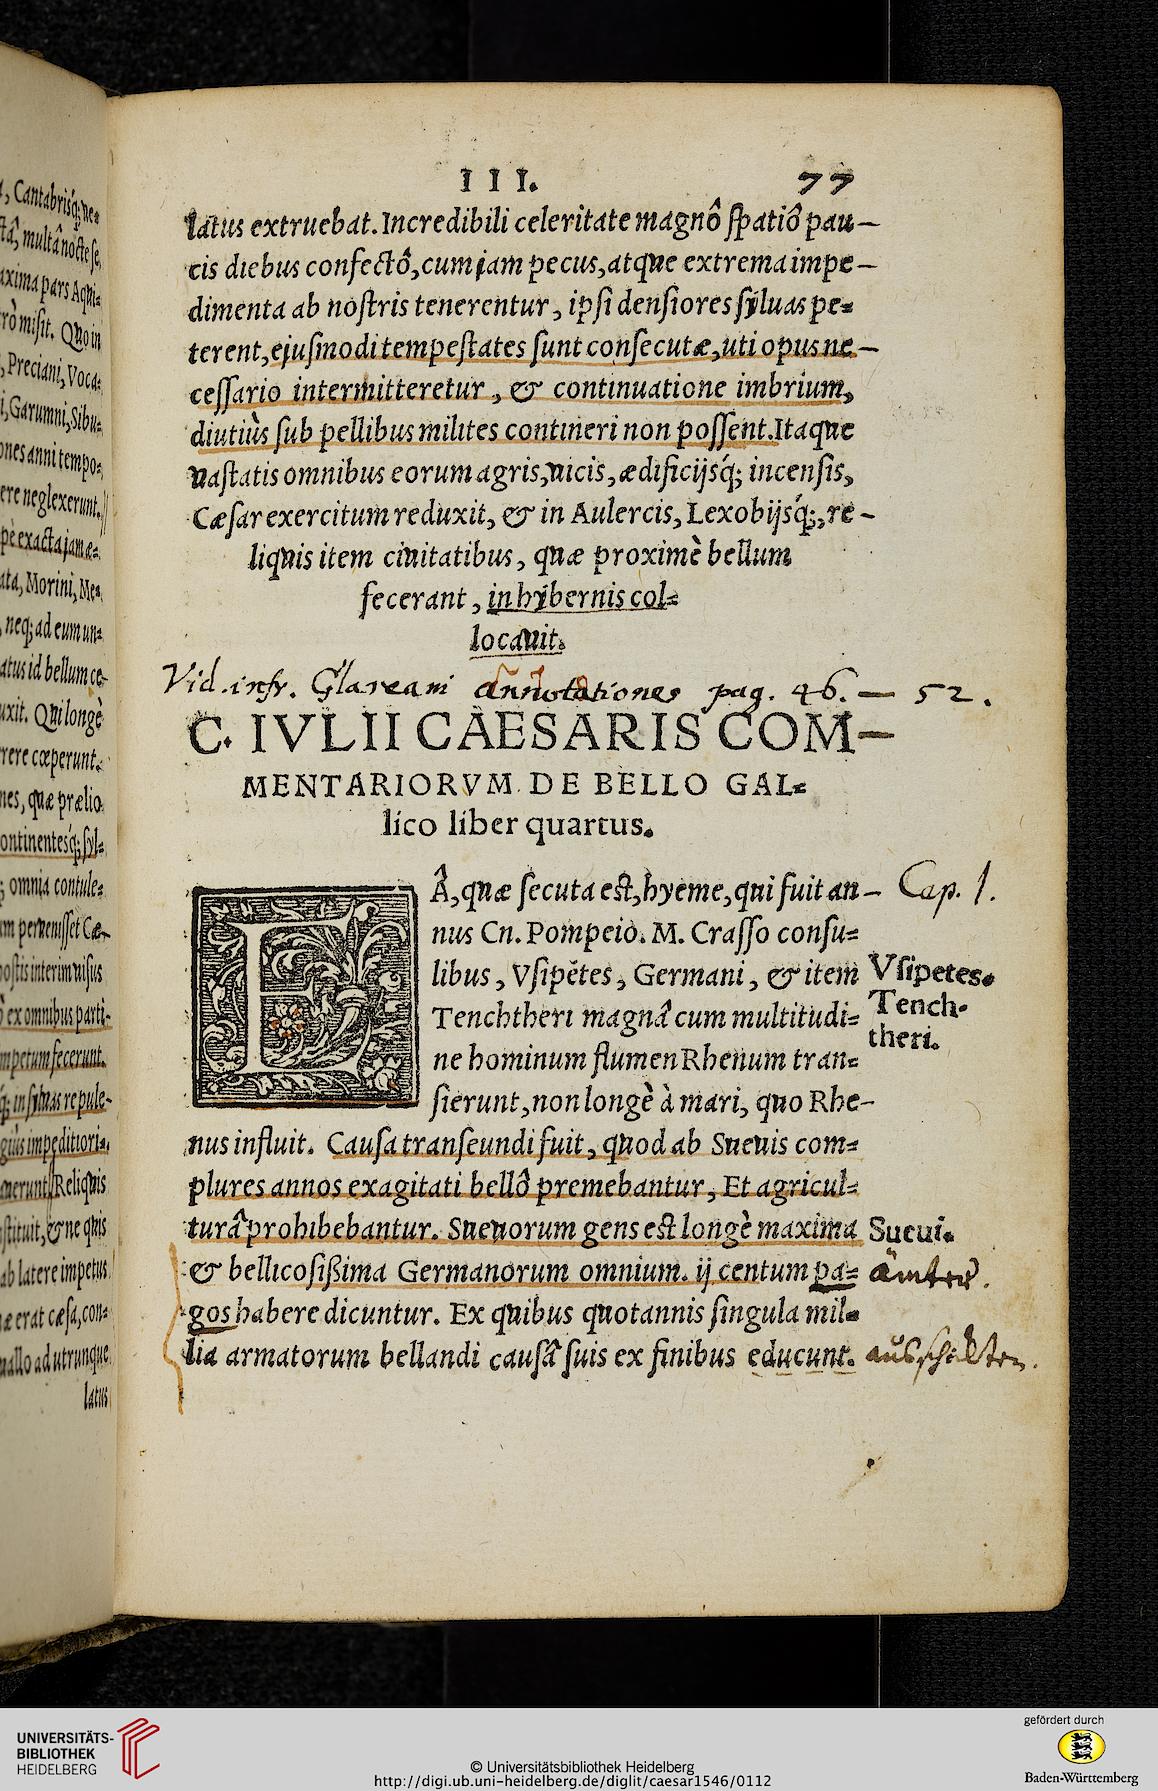 , Cantabrisq́; ne⸗
multâ nocte se
axima pars Aqui⸗
rò misit. Quo in
, Preciani, Voca⸗
i, Garumni, Sibu⸗
ones anni tempo⸗
ere neglexerunt.
pè exacta jam æ⸗
ata, Morini, Me⸗
, neq; ad eum un⸗
atus id bellum ce⸗
uxit. Qui longè
rere cœperunt.
nes, quæ prælio
ontinentesq́; syl⸗
; omnia contule⸗
um pervenisset Cæ⸗
hostis interim visus
ò ex omnibus parti⸗
impetum fecerunt.
q́; in sylvas repule⸗
giùs impeditiori⸗
Reliquis
stituit, & ne quis
ab latere impetus
æ erat cæsa, con⸗
uallo ad utrunque
latus
III. 77
latus extruebat. Incredibili celeritate magnô spatiô pau—
cis diebus confectô, cum jam pecus, atque extrema impe—
dimenta ab nostris tenerentur, ipsi densiores sylvas pe⸗
terent, ejusmodi tempestates sunt consecutæ, uti opus ne—
cessario intermitteretur, & continuatione imbrium,
diutiùs sub pellibus milites contineri non possent. Itaque
vastatis omnibus eorum agris, vicis, ædificijsq́; incensis,
Cæsar exercitum reduxit, & in Aulercis, Lexobijsq́;, re—
liquis item civitatibus, quæ proximè bellum
fecerant, in hybernis col⸗
locavit.
Vid. infr. Glareani annotationes pag. 46. — 52.
C. IVLII CAESARIS COM—
MENTARIORVM DE BELLO GAL⸗
lico liber quartus.
EÂ, quæ secuta est, hyeme, qui fuit an— Cap. 1.
nus Cn. Pompeio. M. Crasso consu⸗
libus, Vsipetes, Germani, & item Vsipetes.
Tenchtheri magnâ cum multitudi⸗ Tench⸗
ne hominum flumen Rhenum tran⸗ theri.
sierunt, non longè à mari, quo Rhe—
nus influit. Causa transeundi fuit, quod ab Suevis com⸗
plures annos exagitati bellô premebantur, Et agricul⸗
turâ prohibebantur. Suevorum gens est longè maxima Suevi.
& bellicosißima Germanorum omnium. ij centum pa⸗ ämter.
gos habere dicuntur. Ex quibus quotannis singula mil⸗
lia armatorum bellandi causâ suis ex finibus educunt.
UNIVERSITÄTS-
BIBLIOTHEK
HEIDELBERG
© Universitätsbibliothek Heidelberg
http://digi.ub.uni-heidelberg.de/diglit/caesar1546/0112
gefördert durch
Baden-Württemberg